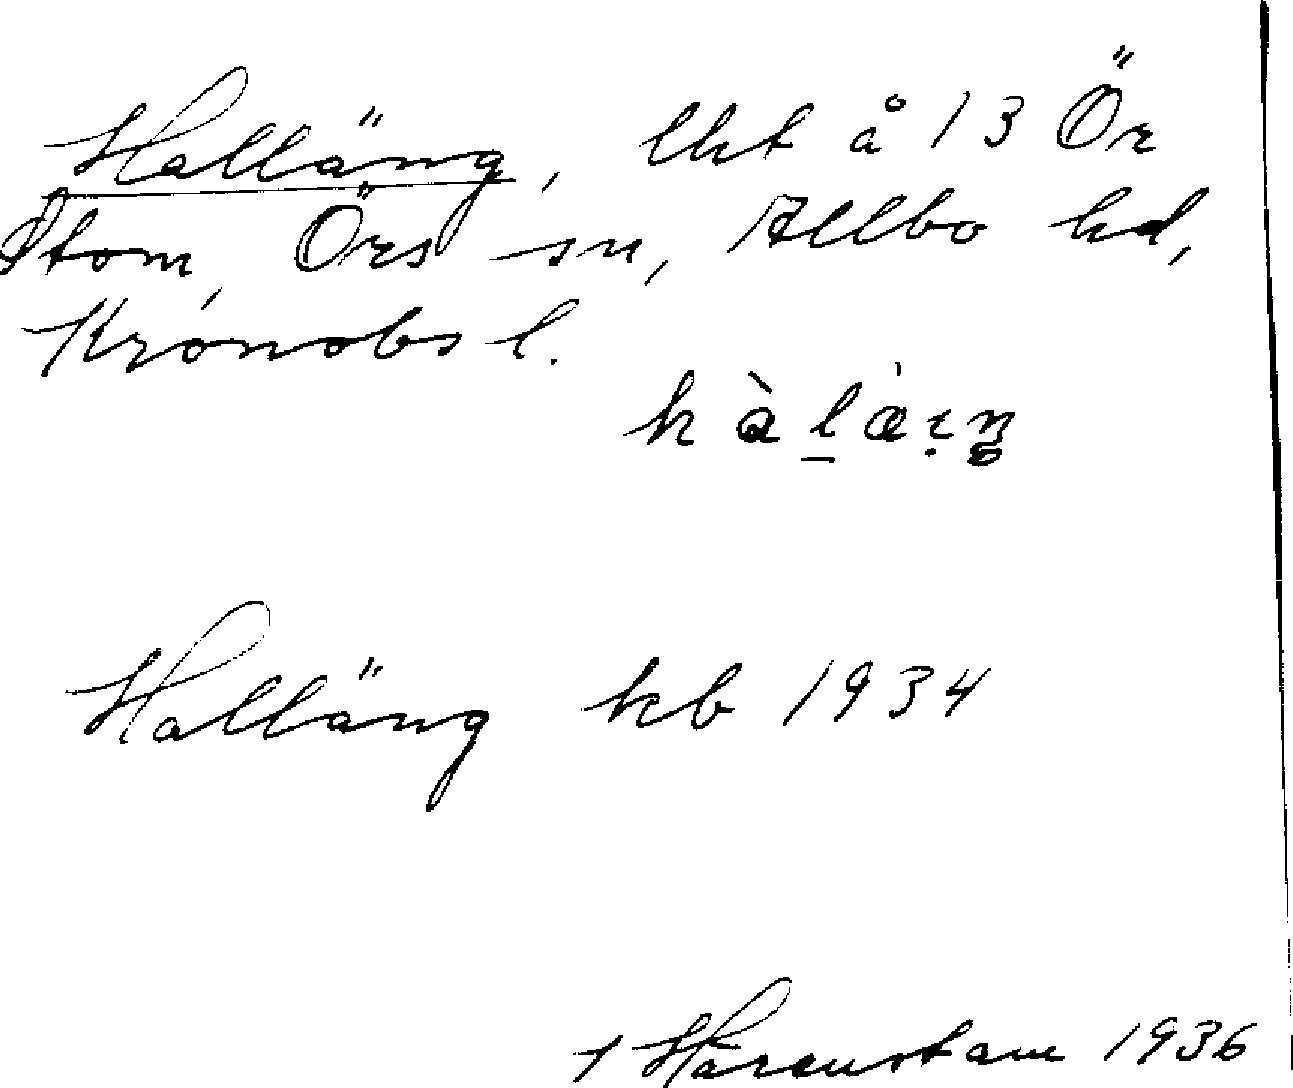 Halläng, lht å 13 Ör
Stom, Örs sn, Allbo hd,
Kronobs l.
hàlä̀ıŋ
Halläng kb 1934
Härenstam 1936